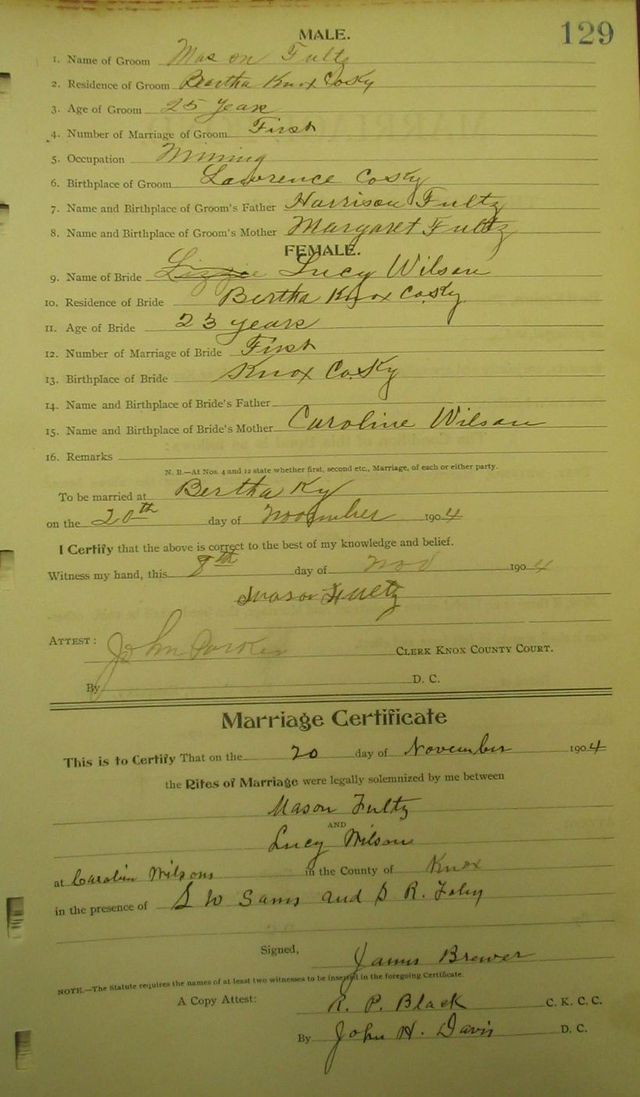 MALE.
129
1. Name of Groom Mason Fultz
2. Residence of Groom Beartha Knox Co Ky
3. Age of Groom 25 years
4. Number of Marriage of Groom First
5. Occupation Mining
6. Birthplace of Groom Lawrence Co Ky
7. Name and Birthplace of Groom's Father Harrison Fultz
8. Name and Birthplace of Groom's Mother Margaret Fultz
FEMALE.
9. Name of Bride Lizzie Lucy Wilson
10. Residence of Bride Bertha Knox Co. Ky.
11. Age of Bride 23 years
12. Number of Marriage of Bride First
13. Birthplace of Bride Knox Co. Ky
14. Name and Birthplace of Bride's Father
15. Name and Birthplace of Bride's Mother Caroline Wilson
16. Remarks
N. B.—At Nos. 4 and 12 state whether first, second etc., Marriage, of each or either party.
To be married at Bertha Ky
on the 20th day of November 1904
I Certify that the above is correct to the best of my knowledge and belief.
Witness my hand, this 8th day of Nov 1904
Mason Fultz
ATTEST: John Parker CLERK KNOX COUNTY COURT.
By D. C.
Marriage Certificate
This is to Certify That on the 20 day of November 1904
the Rites of Marriage were legally solemnized by me between
Mason Fultz
AND
Lucy Wilson
at Carolin Wilsons in the County of Knox
in the presence of S W Sams and S R. Foley
Signed, James Brewer
NOTE.—The Statute requires the names of at least two witnesses to be inserted in the foregoing Certificate.
A Copy Attest: R. P. Black C. K. C. C.
By John H. Davis D. C.